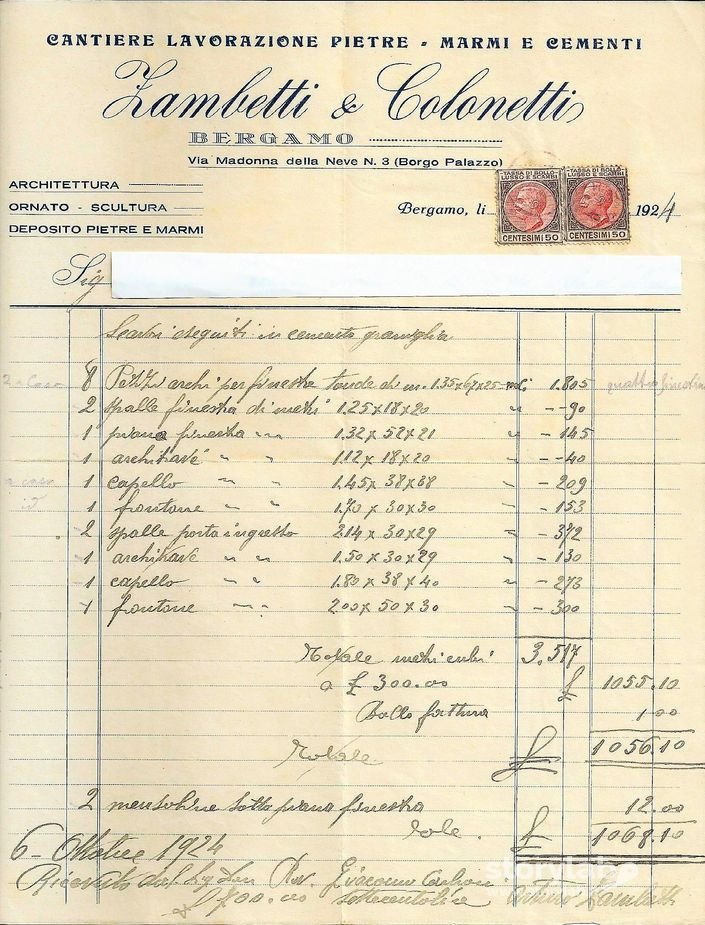 CANTIERE LAVORAZIONE PIETRE - MARMI E CEMENTI
Zambetti & Colonetti
BERGAMO
Via Madonna della Neve N. 3 (Borgo Palazzo)
ARCHITETTURA
ORNATO - SCULTURA
DEPOSITO PIETRE E MARMI
Bergamo, li 1924
TASSA DI BOLLO LUSSO E SCAMBI CENTESIMI 50
TASSA DI BOLLO LUSSO E SCAMBI CENTESIMI 50
Sig
eseguiti in cemento graniglia
8 Pezzi archi per finestra tonde di m. 1.35x67x25 1.805
2 spalle finestra di metri 1.25x18x20 " -90
1 piana finestra " " 1.32x52x21 " -145
1 architrave " " 1.12x18x20 " -40
1 capello " " 1.45x38x38 " -209
1 frontone " " 1.70x30x30 " -153
2 spalle porta ingresso 2.14x30x29 " -372
1 architrave " " 1.50x30x29 " -130
1 capello " " 1.80x38x40 " -273
1 frontone " " 2.00x50x30 " -300
Totale metri cubi 3.517
a £ 300.00 £ 1055.10
Bollo fattura 1.00
Totale £ 1056.10
2 mensoline sotto piana finestra 12.00
£ 1068.10
6 - Ottobre 1924
Ricevuto dal Rev. Giacomo
£ 700.00 settecento lire Arturo Zambetti